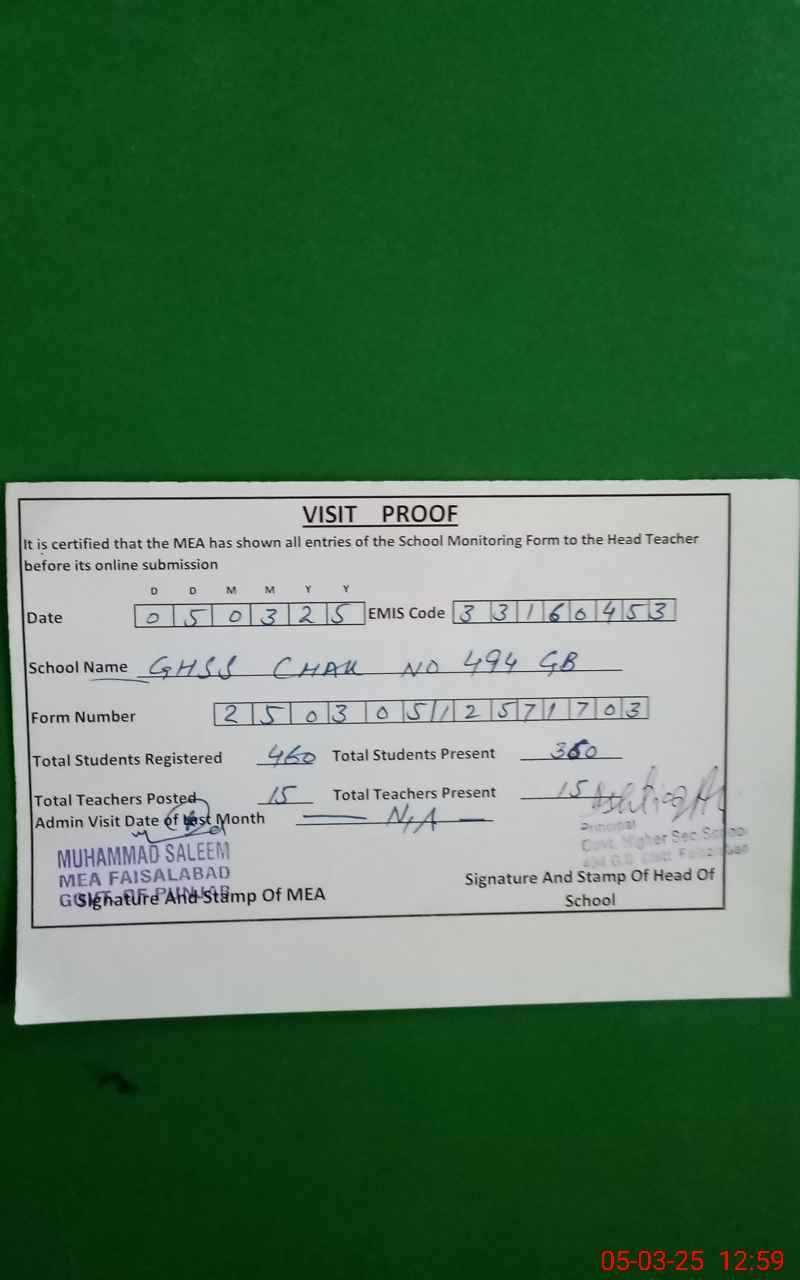 VISIT PROOF
It is certified that the MEA has shown all entries of the School Monitoring Form to the Head Teacher
before its online submission
D D M M Y Y
Date 0 5 0 3 2 5 EMIS Code 3 3 1 6 0 4 5 3
School Name GHSS CHAK NO 494 GB
Form Number 2 5 0 3 0 5 1 2 5 7 1 7 0 3
Total Students Registered 460 Total Students Present 360
Total Teachers Posted 15 Total Teachers Present 15
Admin Visit Date of last Month N/A
MUHAMMAD SALEEM
MEA FAISALABAD
GOVT OF PUNJAB
Signature And Stamp Of MEA
Principal
Govt. Higher Sec School
494 G.B Distt. Faisalabad
Signature And Stamp Of Head Of
School
05-03-25 12:59